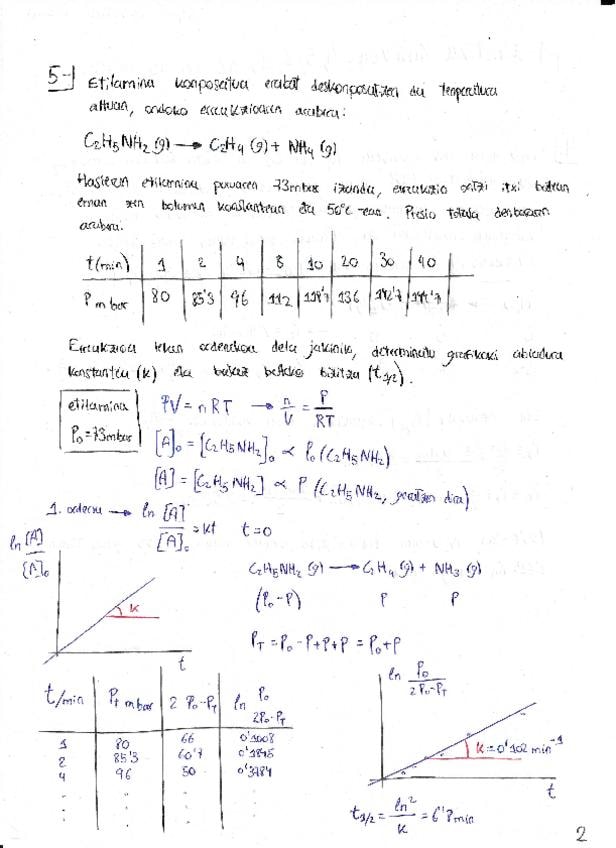 5-) Etilamina konposatua erabat deskonposatzen da tenperatura
altuan, ondoko erreakzioaren arabera:
C2H5NH2 (g) → C2H4 (g) + NH4 (g)
Hasieran etilamina puruaren 73mbar izanda, erreakzio ontzi itxi batean
eman zen bolumen konstantean eta 50°C-ean. Presio totala denboraren
arabera:
t(min) 1 2 4 8 10 20 30 40
P mbar 80 85'3 96 112 118'7 136 142'7
Erreakzioa lehen ordenekoa dela jakinik, determinatu grafikoki abiadura
konstantea (k) eta batez besteko bizitza (t1/2).
etilamina
P0=73mbar
PV = nRT → n/V = P/RT
[A]0 = [C2H5NH2]0 ∝ P0 (C2H5NH2)
[A] = [C2H5NH2] ∝ P (C2H5NH2, geratzen dira)
1. ordena → ln [A]/[A]0 = kt t=0
ln [A]/[A]0
k
t
C2H5NH2 (g) → C2H4 (g) + NH3 (g)
(P0-P) P P
PT = P0-P+P+P = P0+P
t/min Pt mbar 2P0-PT ln P0/2P0-PT
1 80 66 0'1008
2 85'3 60'7 0'1845
4 96 50 0'3784
ln P0/2P0-PT
k=0'102 min-1
t
t1/2 = ln2/k = 6'8min
2